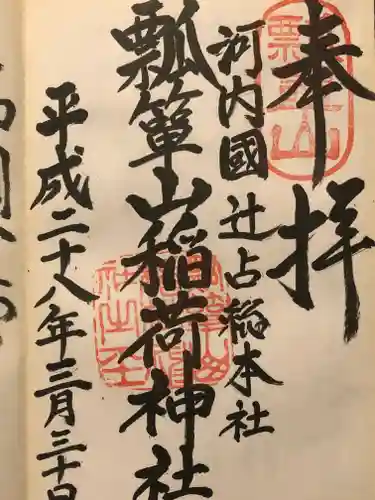 奉拝
瓢箪山
河内國 辻占稲本社
瓢箪山稲荷神社
平成二十八年三月三十日